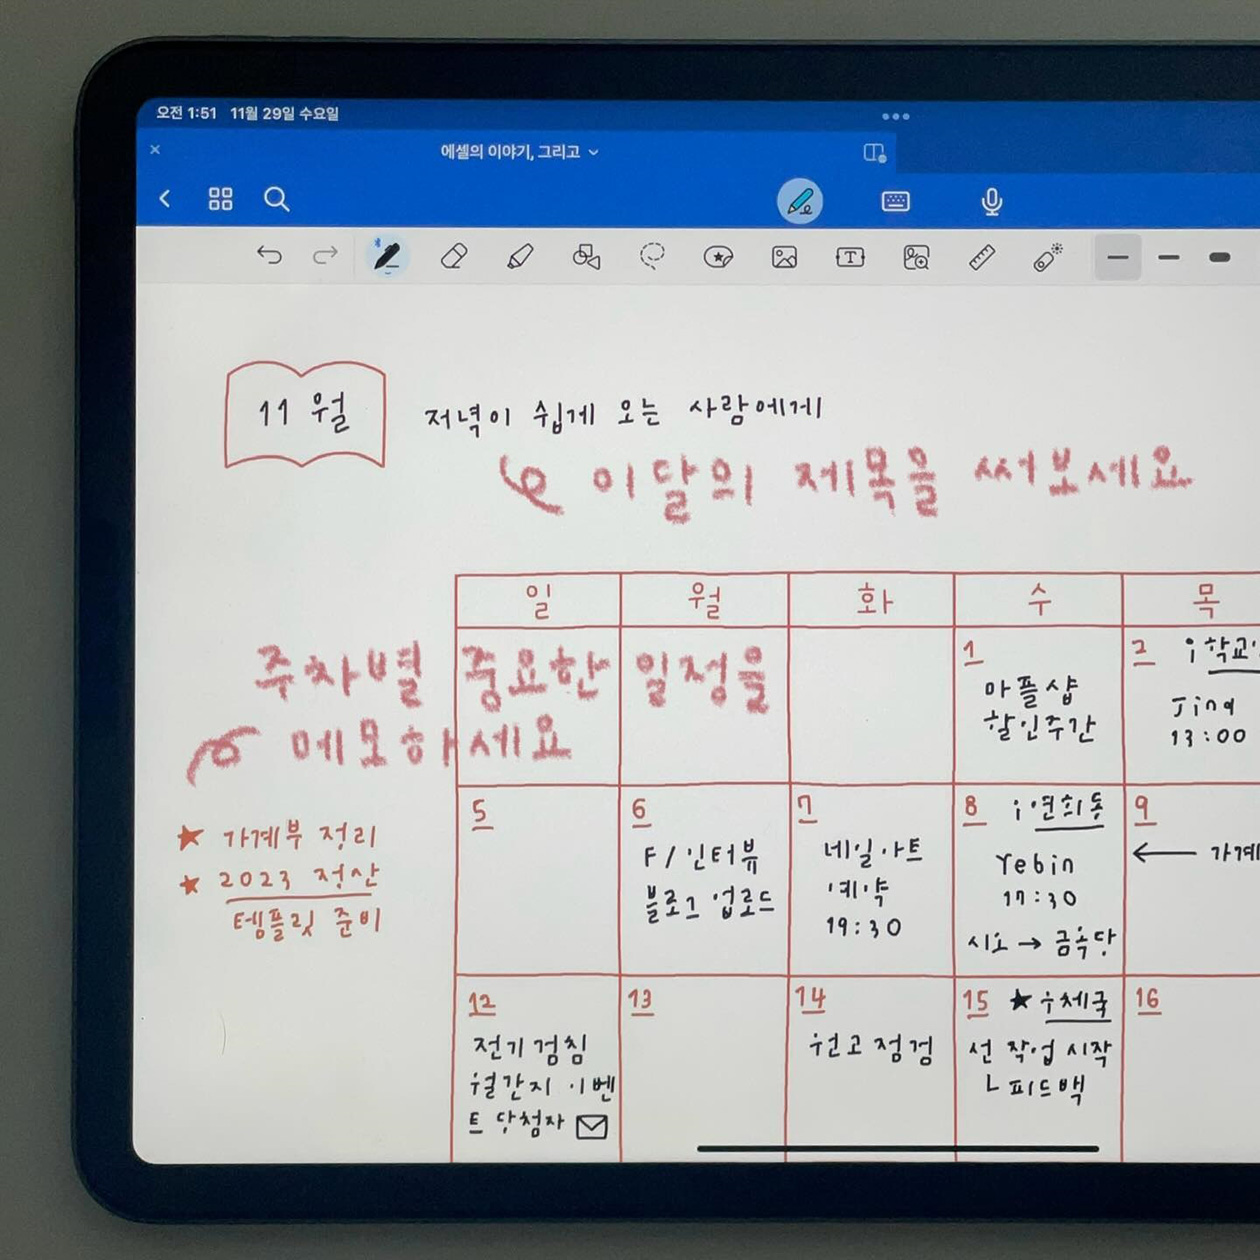 오전 1:51 11월 29일 수요일
에셀의 이야기, 그리고
11월
저녁이 쉽게 오는 사람에게
이달의 제목을 써보세요
일 월 화 수 목
주차별 중요한 일정을
메모하세요
★ 가계부 정리
★ 2023 정산
템플릿 준비
1
아플샵
할인주간
2 학교
Jing
13:00
5
6
F/인터뷰
블로그 업로드
7
네일아트
예약
19:30
8 연희동
Yebin
17:30
시오 → 금옥당
9
← 가계
12
전기검침
월간지 이벤
트 당첨자
13
14
원고 점검
15 ★ 우체국
선 작업 시작
ㄴ 피드백
16